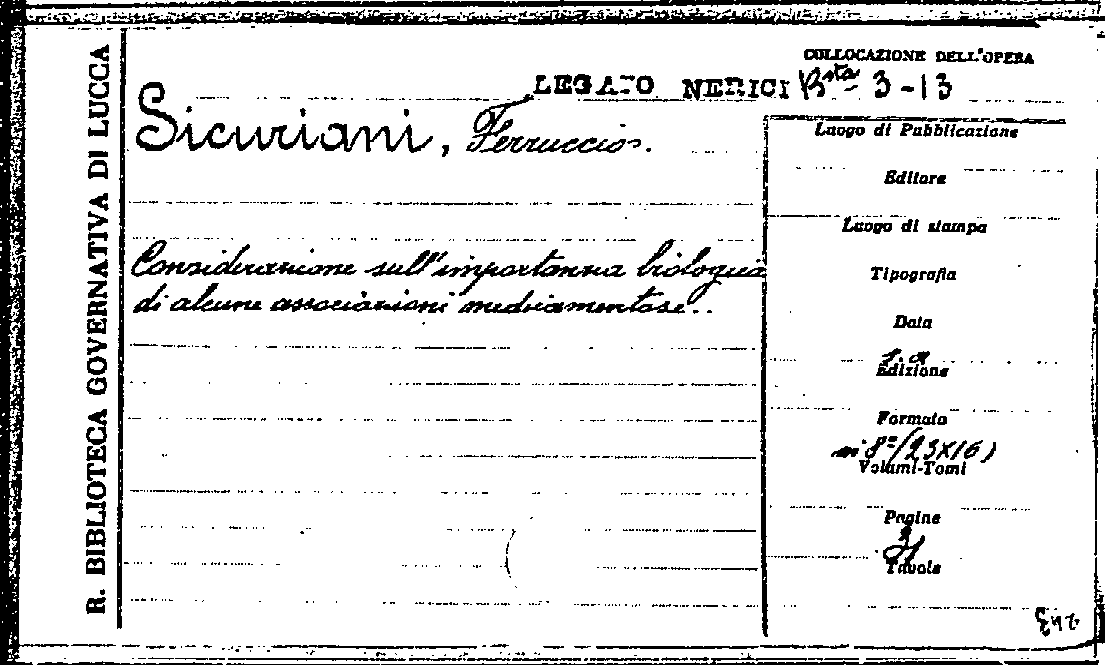 R. BIBLIOTECA GOVERNATIVA DI LUCCA
COLLOCAZIONE DELL'OPERA
LEGATO NERICI Bsta 3-13
Sicuriani, Ferruccio.
Considerazione sull'importanza biologica
di alcune associazioni medicamentose..
Luogo di Pubblicazione
Editore
Luogo di stampa
Tipografia
Data
s. a
Edizione
Formato
in 8º (23X16)
Volumi-Tomi
Pagine
Tavole